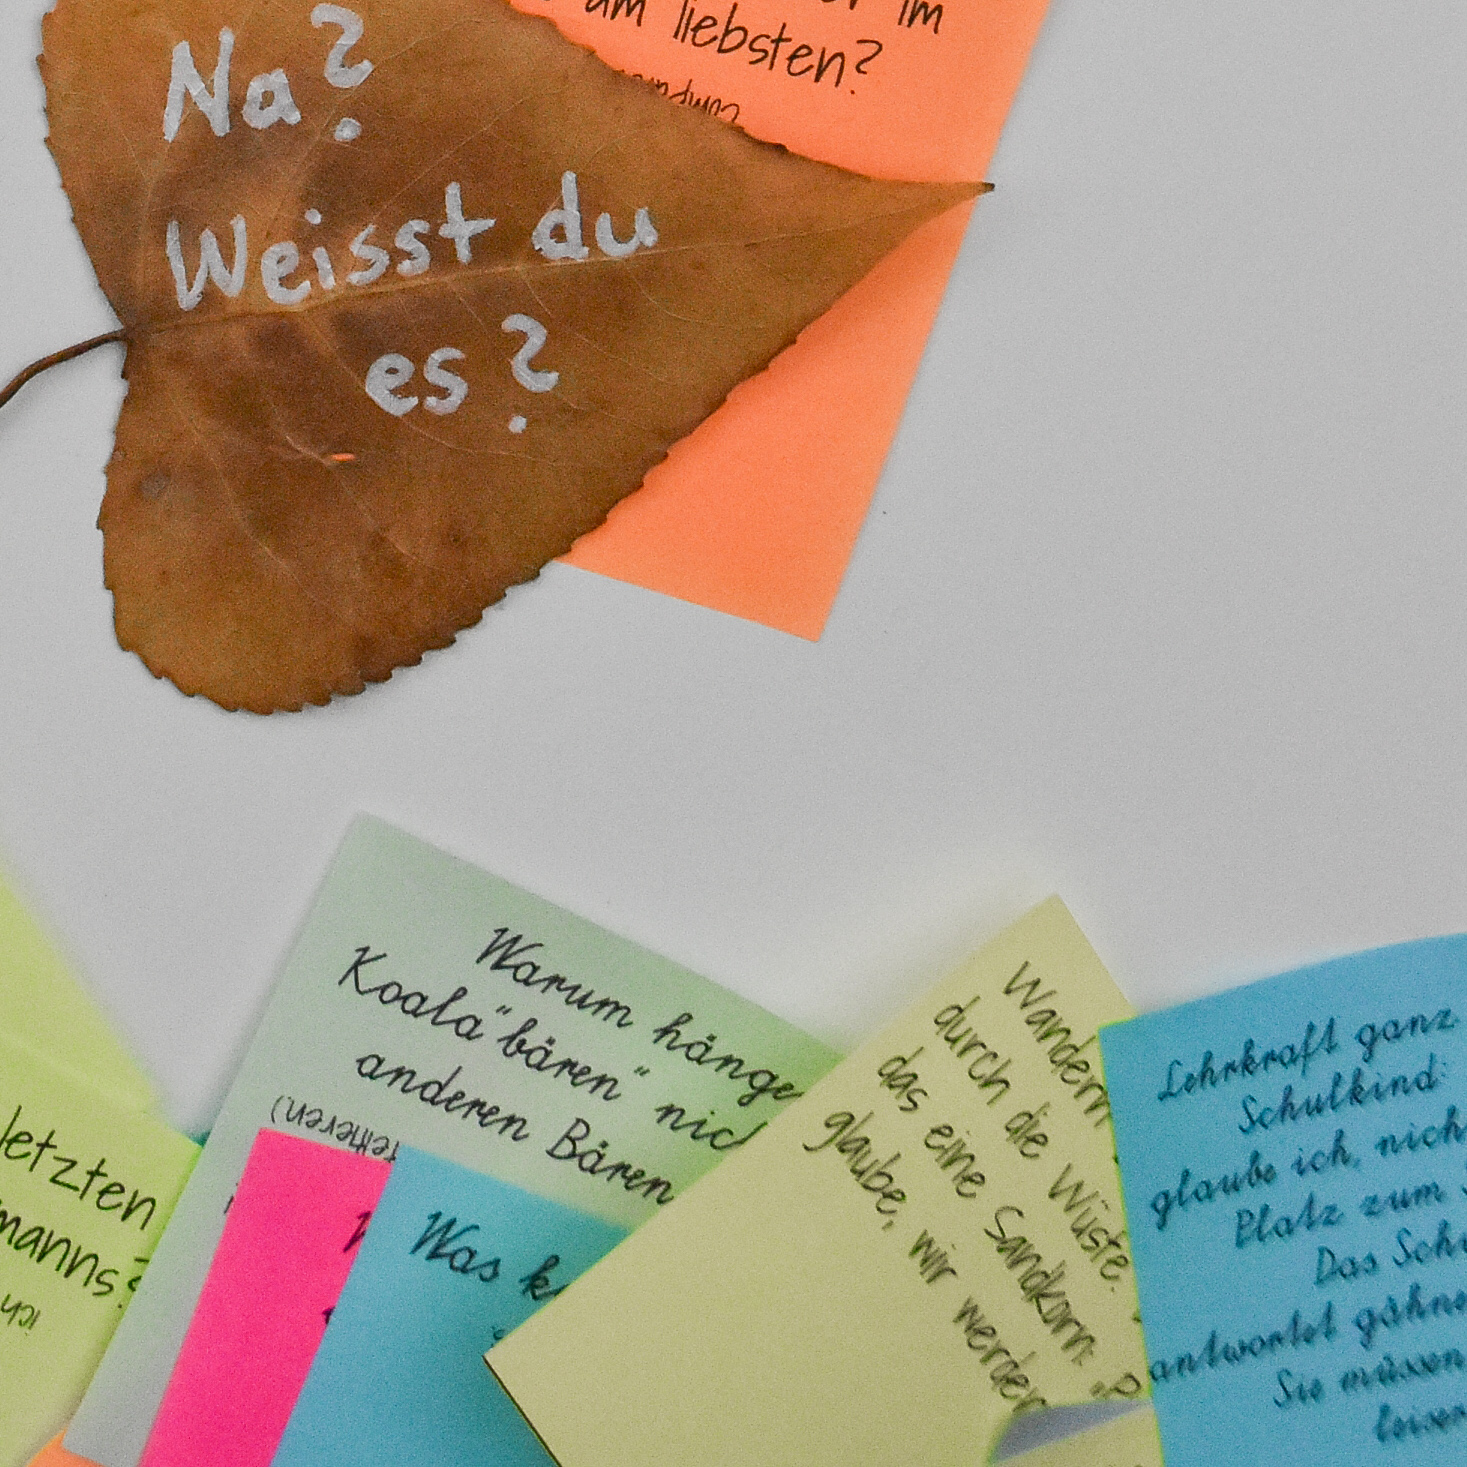 im
am liebsten?
Na?
Weisst du
es?
letzten
manns?
ich
Warum hänge
Koala"bären" nic
anderen Bären
Was k
Wandern
durch die Wüste.
das eine Sandkorn: "
glaube, wir werden
Lehrkraft ganz
Schulkind:
glaube ich, nich
Platz zum
Das Schu
antwortet gähne
Sie müssen
leiser